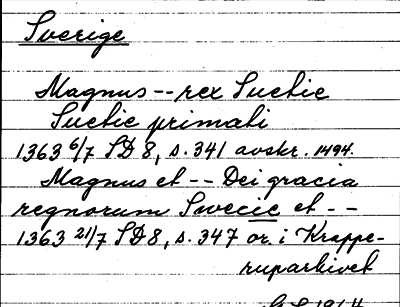 Sverige
Magnus -- rex Suetie
Suetie primati
1363 6/7 SD 8, s. 341 avskr. 1494.
Magnus et -- Dei gracia
regnorum Swecie et --
1363 21/7 SD 8, s. 347 or. i Krappe-
ruparkivet